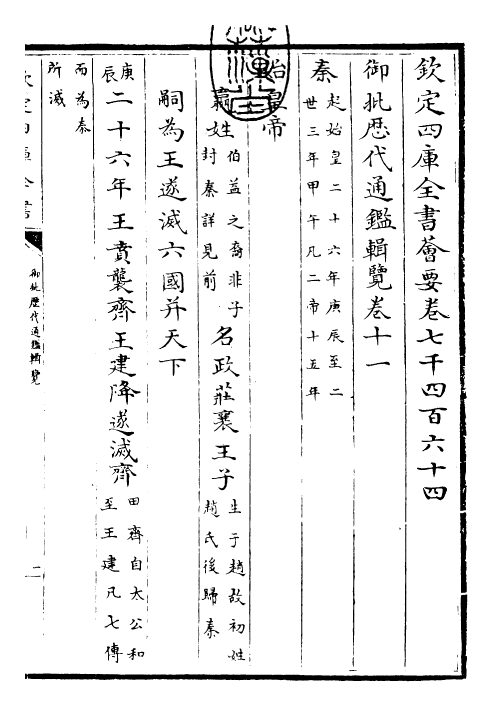 欽定四庫全書薈要卷七千四百六十四
御批歴代通鑑輯覽卷十一
秦起始皇二十六年庚辰至二
世三年甲午凡二帝十五年
始皇帝
嬴姓伯益之裔非子
封秦詳見前名政莊襄王子生于趙故初姓
趙氏後歸秦
嗣為王遂滅六國并天下
庚辰二十六年王賁襲齊王建降遂滅齊田齊自太公和
至王建凡七傳
而為秦
所滅
欽定四庫全書
御批歷代通鑑輯覽
二